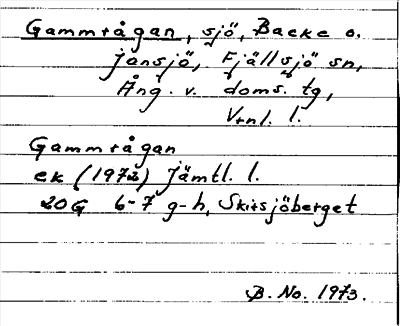 Gammtågan, sjö, Backe o.
Jansjö, Fjällsjö sn,
Ång. v. doms. tg,
Vrnl. l.
Gammtågan
ek (1972) Jämtl. l.
20G 6-7 g-h, Skirsjöberget
B. No. 1973.